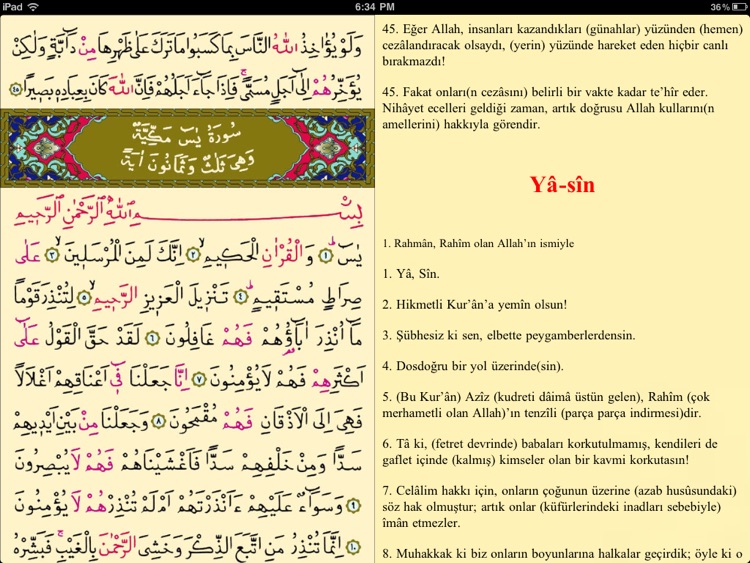 iPad 6:34 PM 36%
وَلَوْ يُؤَاخِذُ اللّٰهُ النَّاسَ بِمَا كَسَبُوا مَا تَرَكَ عَلٰى ظَهْرِهَا مِنْ دَآبَّةٍ وَلٰكِنْ
يُؤَخِّرُهُمْ اِلٰٓى اَجَلٍ مُسَمًّىۚ فَاِذَا جَآءَ اَجَلُهُمْ فَاِنَّ اللّٰهَ كَانَ بِعِبَادِه۪ بَص۪يرًا ﴿٤٥﴾
سُورَةُ يٰسٓ مَكِّيَّةٌ
وَهِيَ ثَلٰثٌ وَثَمَانُونَ اٰيَةً
بِسْمِ اللّٰهِ الرَّحْمٰنِ الرَّح۪يمِ
يٰسٓۜ ﴿١﴾ وَالْقُرْاٰنِ الْحَك۪يمِۙ ﴿٢﴾ اِنَّكَ لَمِنَ الْمُرْسَل۪ينَۙ ﴿٣﴾ عَلٰى
صِرَاطٍ مُسْتَق۪يمٍۜ ﴿٤﴾ تَنْز۪يلَ الْعَز۪يزِ الرَّح۪يمِۙ ﴿٥﴾ لِتُنْذِرَ قَوْمًا
مَٓا اُنْذِرَ اٰبَٓاؤُ۬هُمْ فَهُمْ غَافِلُونَ ﴿٦﴾ لَقَدْ حَقَّ الْقَوْلُ عَلٰٓى
اَكْثَرِهِمْ فَهُمْ لَا يُؤْمِنُونَ ﴿٧﴾ اِنَّا جَعَلْنَا ف۪ٓي اَعْنَاقِهِمْ اَغْلَالًا
فَهِيَ اِلَى الْاَذْقَانِ فَهُمْ مُقْمَحُونَ ﴿٨﴾ وَجَعَلْنَا مِنْ بَيْنِ اَيْد۪يهِمْ
سَدًّا وَمِنْ خَلْفِهِمْ سَدًّا فَاَغْشَيْنَاهُمْ فَهُمْ لَا يُبْصِرُونَ
﴿٩﴾ وَسَوَٓاءٌ عَلَيْهِمْ ءَاَنْذَرْتَهُمْ اَمْ لَمْ تُنْذِرْهُمْ لَا يُؤْمِنُونَ
﴿١٠﴾ اِنَّمَا تُنْذِرُ مَنِ اتَّبَعَ الذِّكْرَ وَخَشِيَ الرَّحْمٰنَ بِالْغَيْبِۚ فَبَشِّرْهُ
45. Eğer Allah, insanları kazandıkları (günahlar) yüzünden (hemen)
cezâlandıracak olsaydı, (yerin) yüzünde hareket eden hiçbir canlı
bırakmazdı!
45. Fakat onları(n cezâsını) belirli bir vakte kadar te’hîr eder.
Nihâyet ecelleri geldiği zaman, artık doğrusu Allah kullarını(n
amellerini) hakkıyla görendir.
Yâ-sîn
1. Rahmân, Rahîm olan Allah’ın ismiyle
1. Yâ, Sîn.
2. Hikmetli Kur’ân’a yemîn olsun!
3. Şübhesiz ki sen, elbette peygamberlerdensin.
4. Dosdoğru bir yol üzerinde(sin).
5. (Bu Kur’ân) Azîz (kudreti dâimâ üstün gelen), Rahîm (çok
merhametli olan Allah)’ın tenzîli (parça parça indirmesi)dir.
6. Tâ ki, (fetret devrinde) babaları korkutulmamış, kendileri de
gaflet içinde (kalmış) kimseler olan bir kavmi korkutasın!
7. Celâlim hakkı için, onların çoğunun üzerine (azab husûsundaki)
söz hak olmuştur; artık onlar (küfürlerindeki inadları sebebiyle)
îmân etmezler.
8. Muhakkak ki biz onların boyunlarına halkalar geçirdik; öyle ki o